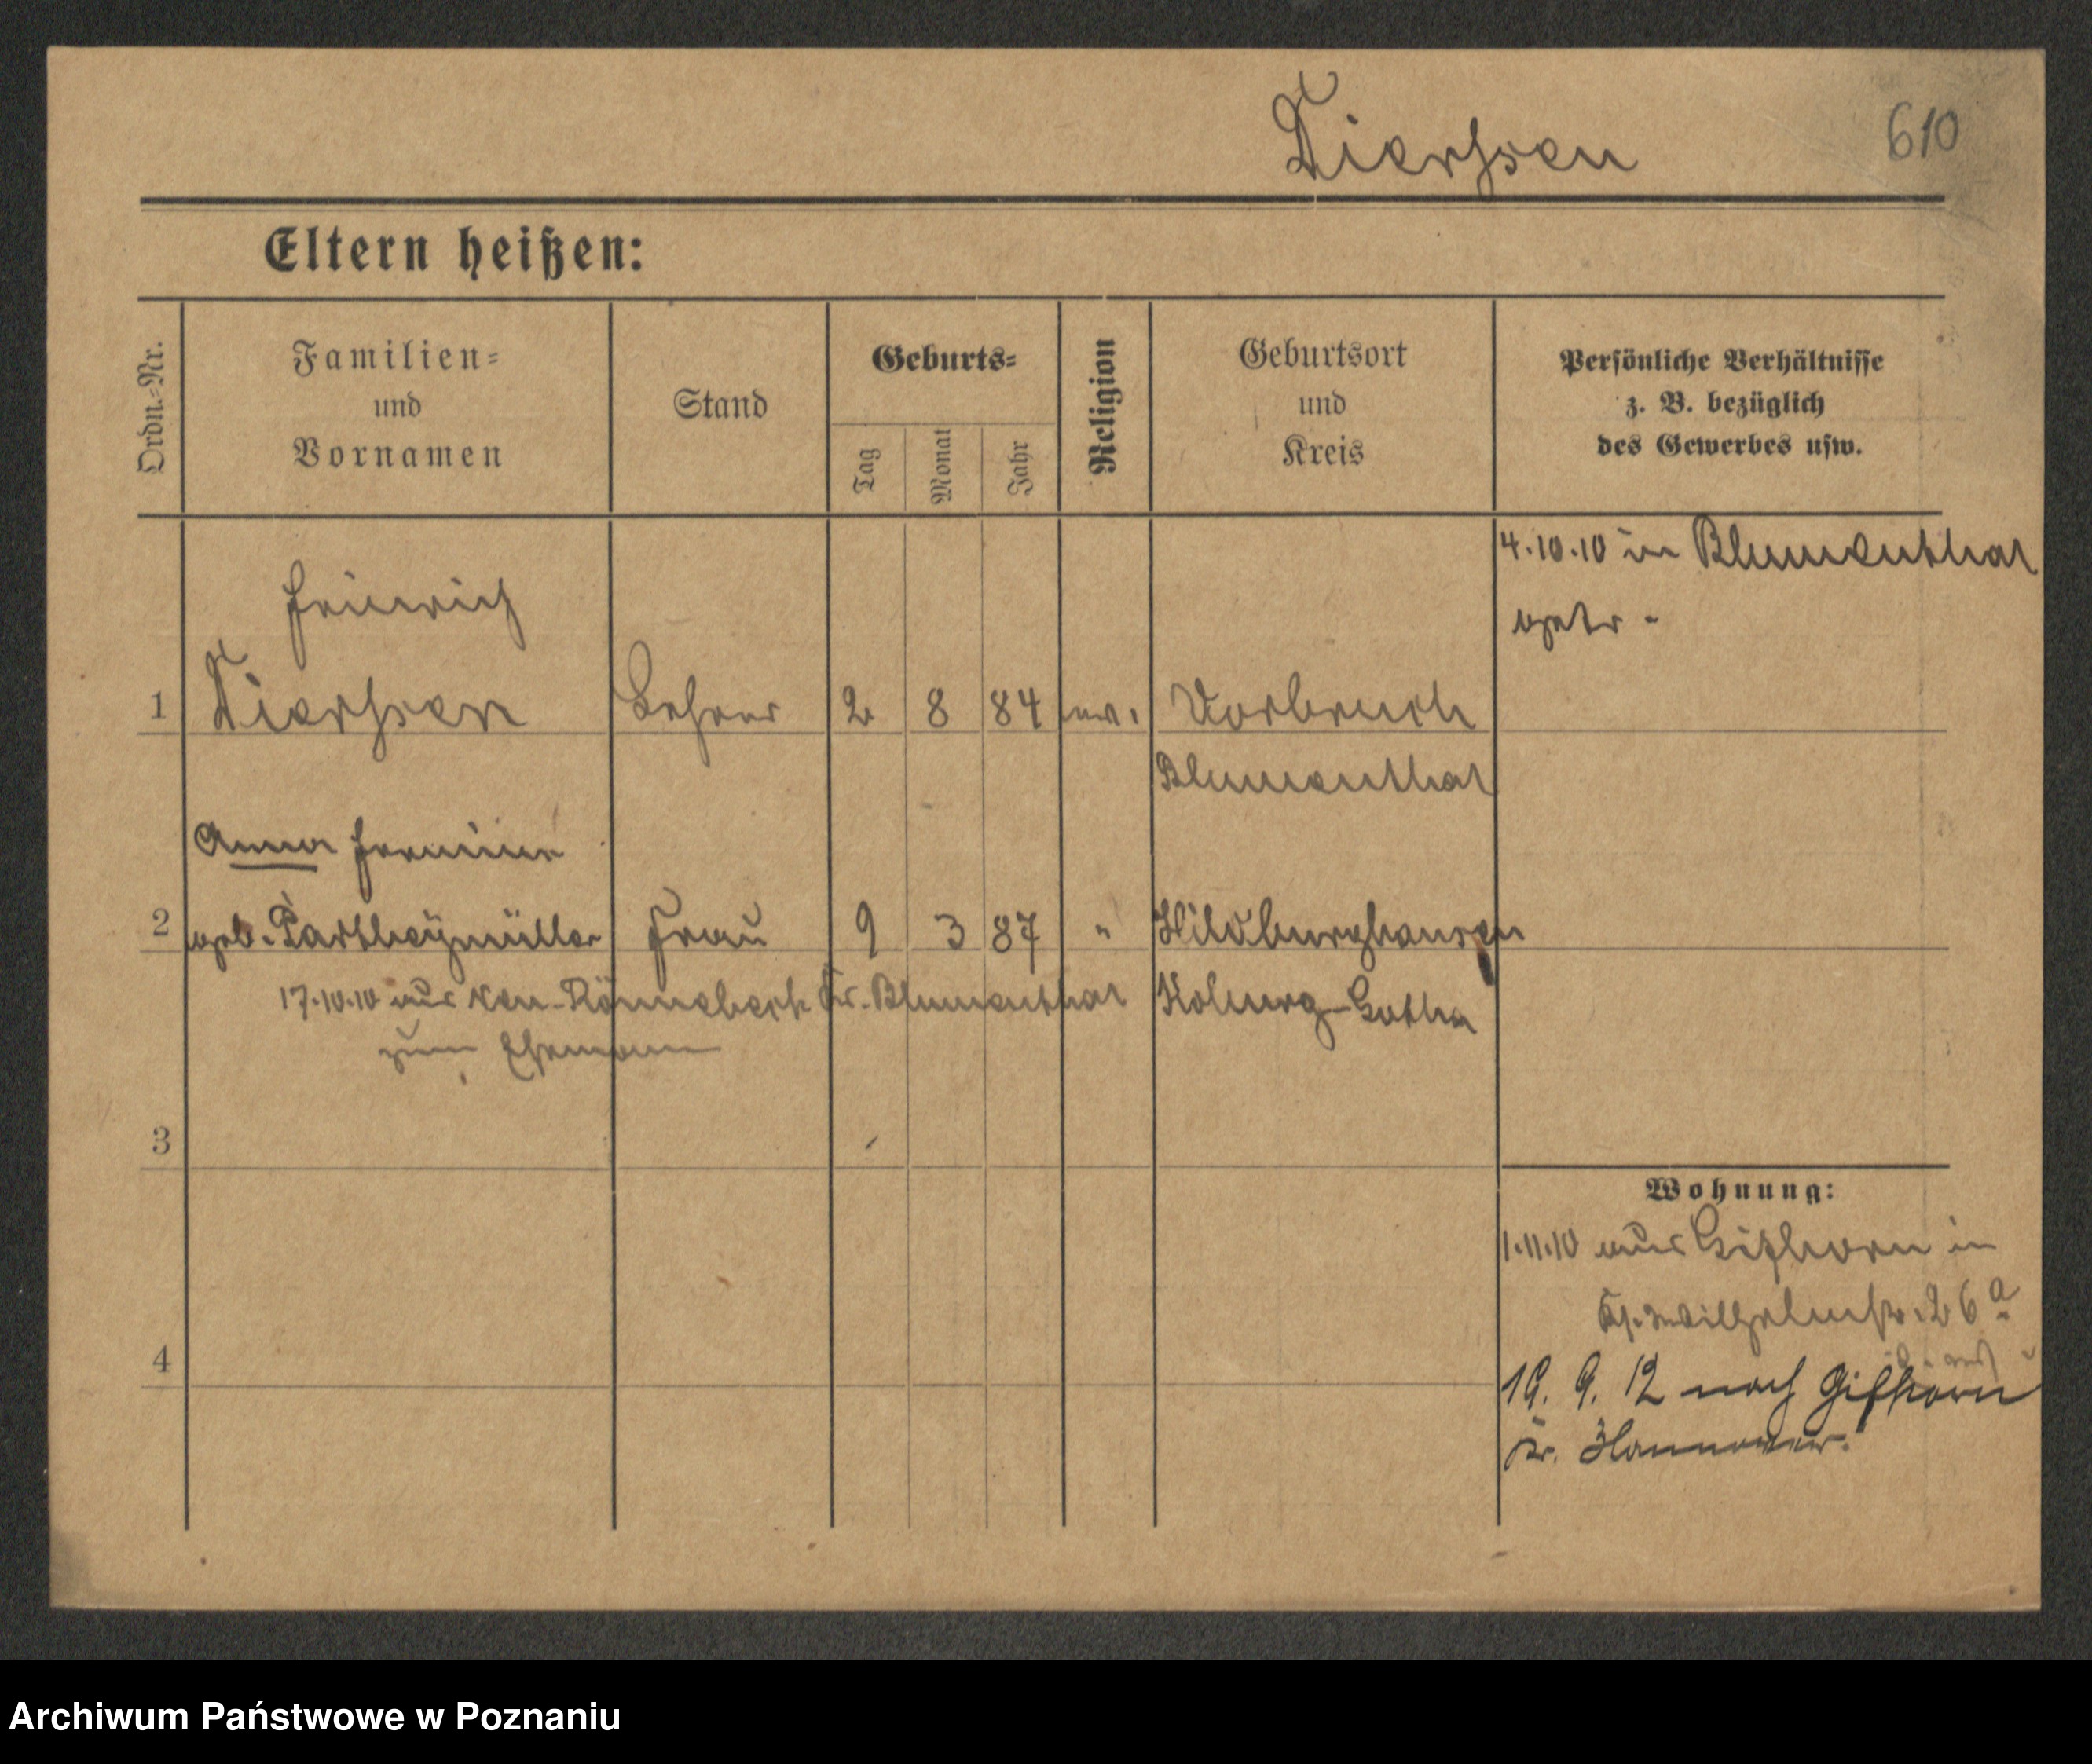 Dierssen 610
Eltern heißen:
Ordn.=Nr.
Familien=
und
Vornamen
Stand
Geburts=
Tag
Monat
Jahr
Religion
Geburtsort
und
Kreis
Persönliche Verhältnisse
z. B. bezüglich
des Gewerbes usw.
4.10.10 in Blumenthal
getr.
Heinrich
1 Dierssen Lehrer 2 8 84 ev. Vorbruch
Blumenthal
Anna Hermine
2 geb. Partheymüller Frau 9 3 87 " Hildburghausen
17.10.10 aus Rönnebeck Kr. Blumenthal Koburg-Gotha
zum Ehemann
3
Wohnung:
1.11.10 aus Gifhorn in
26a
4
19. 9. 12 nach Gifhorn
Pr. Hannover.
Archiwum Państwowe w Poznaniu